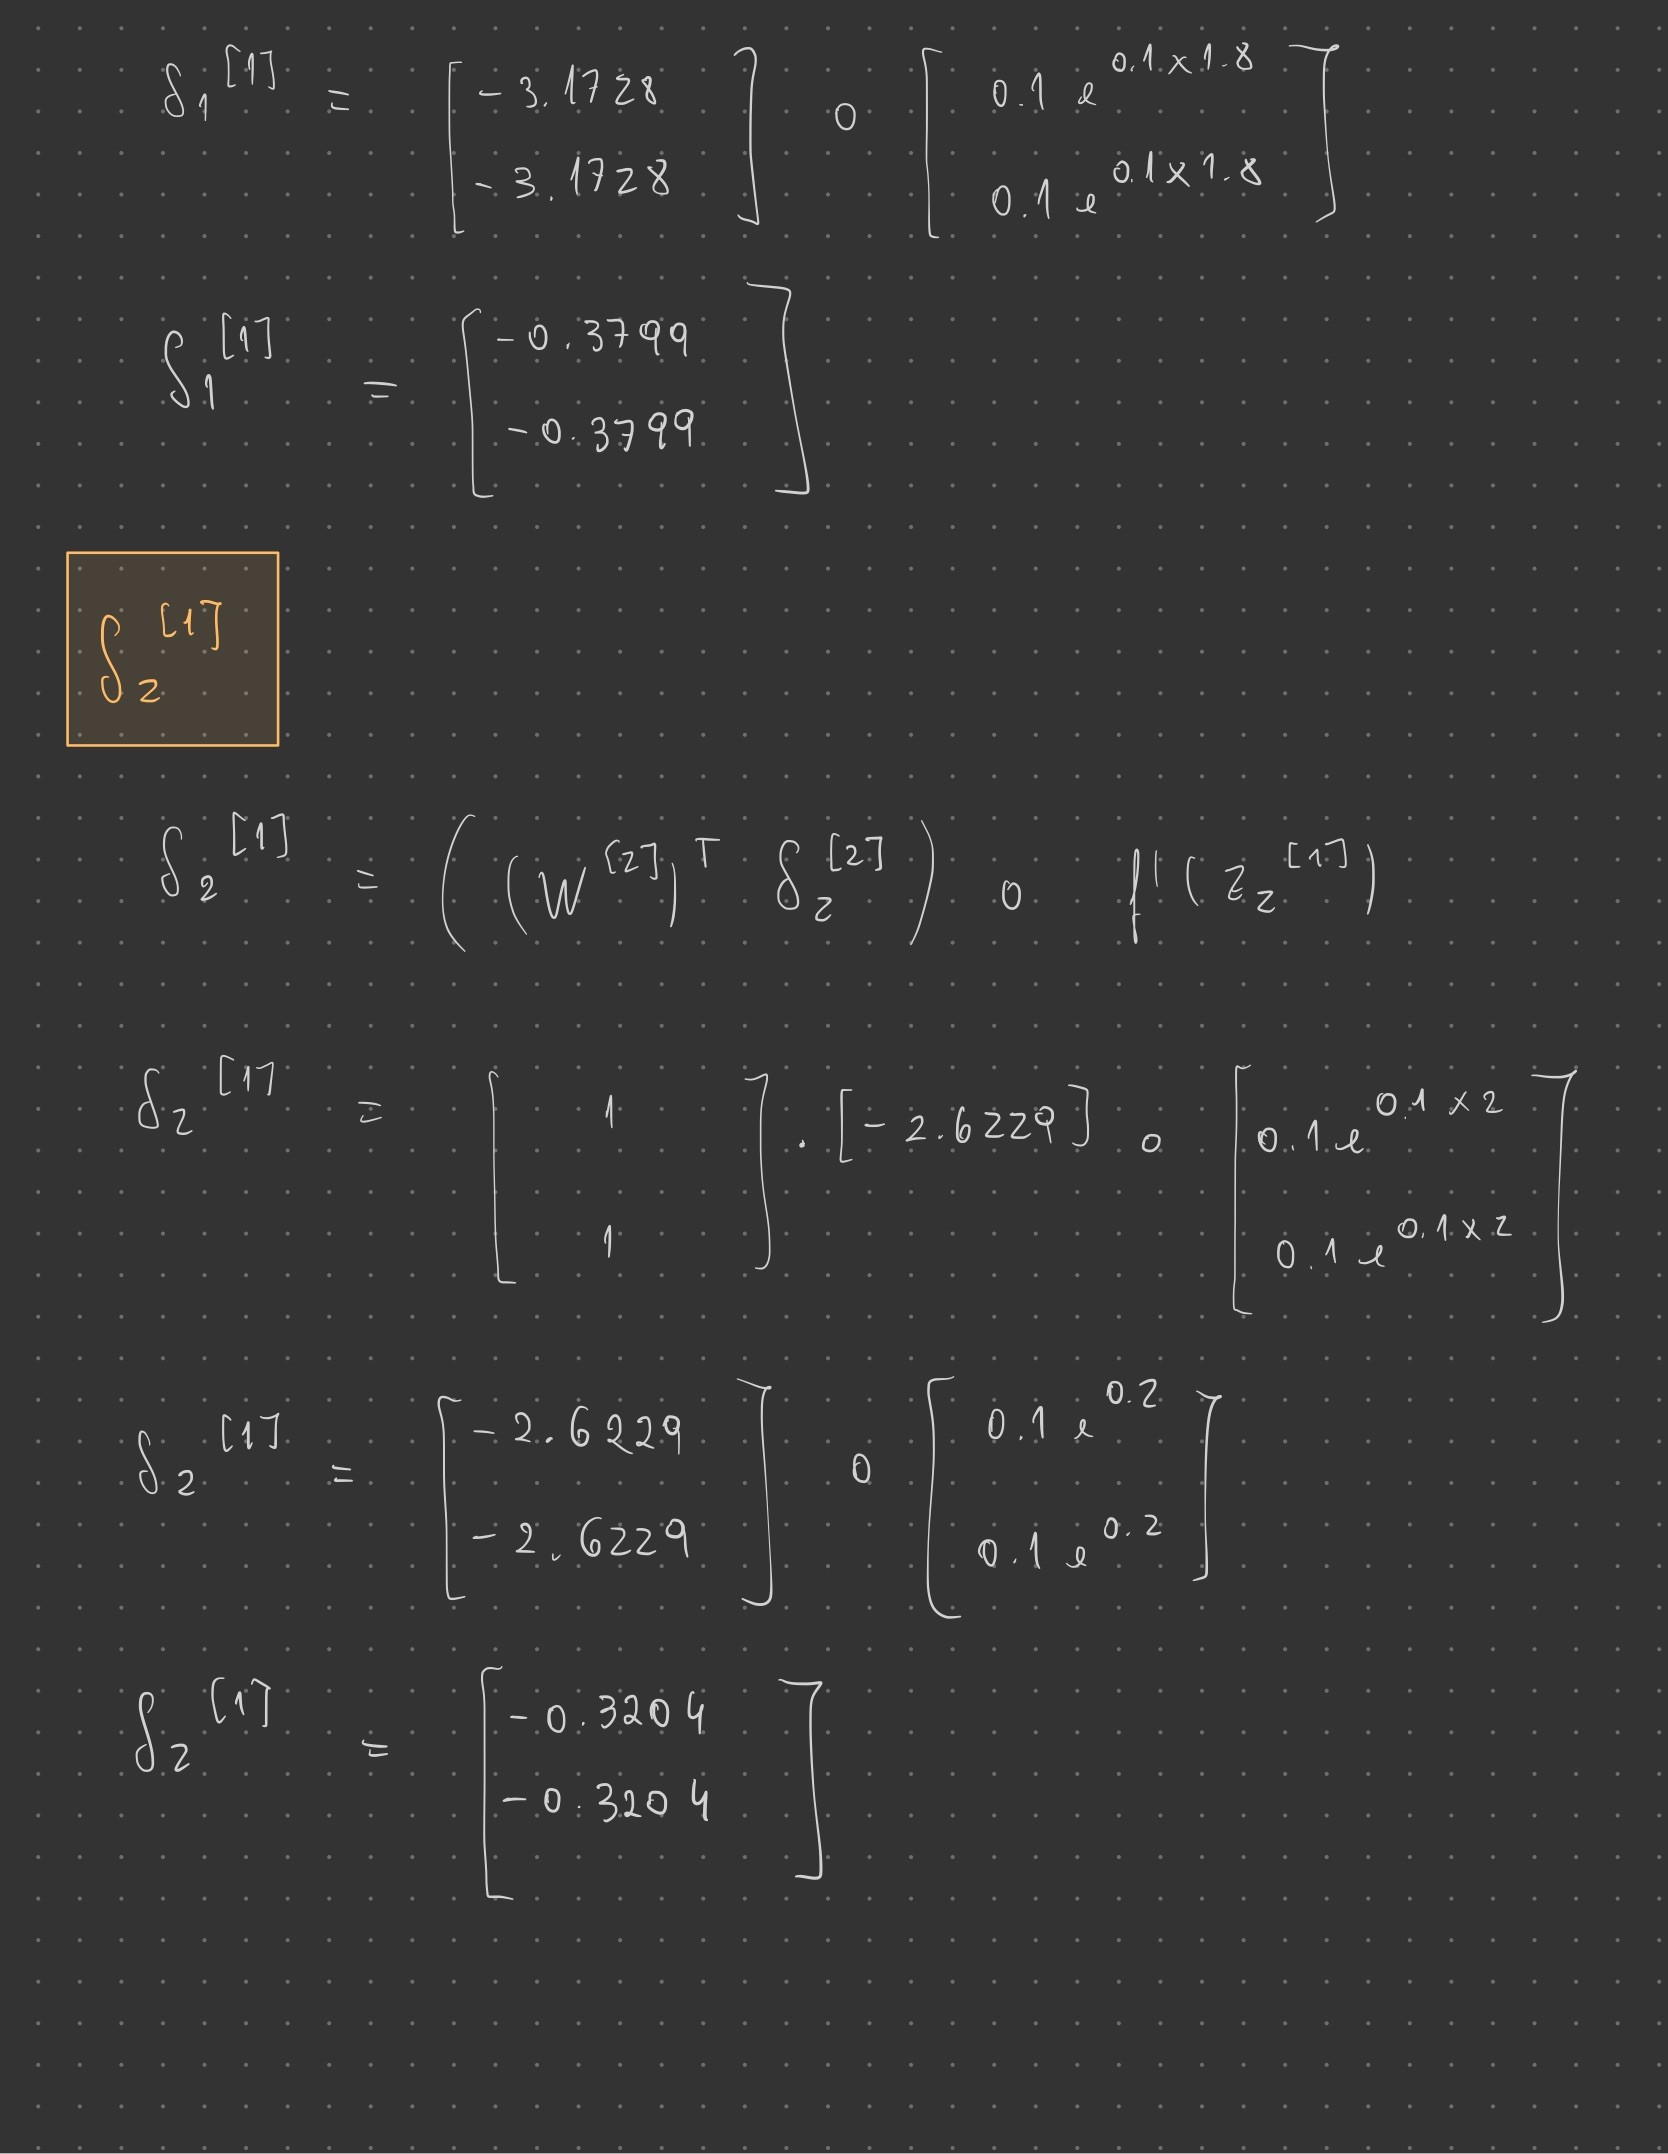 δ₁^[1] = [-3.1728; -3.1728] ∘ [0.1 e^(0.1×1.8); 0.1 e^(0.1×1.8)]
δ₁^[1] = [-0.3799; -0.3799]
δ₂^[1]
δ₂^[1] = ((W^[2])^T δ₂^[2]) ∘ f'(z₂^[1])
δ₂^[1] = [1; 1] · [-2.6229] ∘ [0.1 e^(0.1×2); 0.1 e^(0.1×2)]
δ₂^[1] = [-2.6229; -2.6229] ∘ [0.1 e^0.2; 0.1 e^0.2]
δ₂^[1] = [-0.3204; -0.3204]